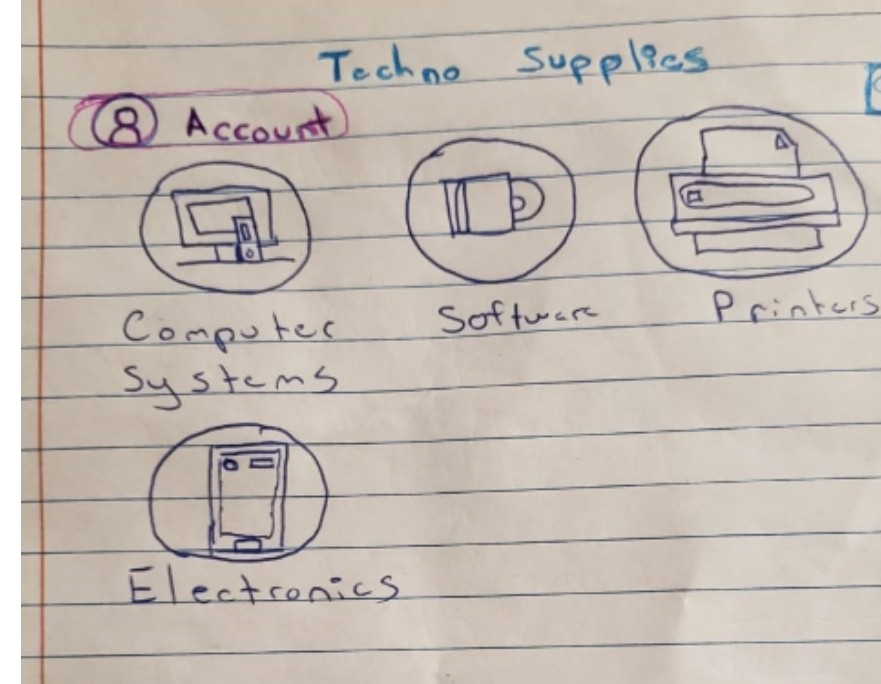 Techno Supplies
Account
Computer
Systems
Software
Printers
Electronics